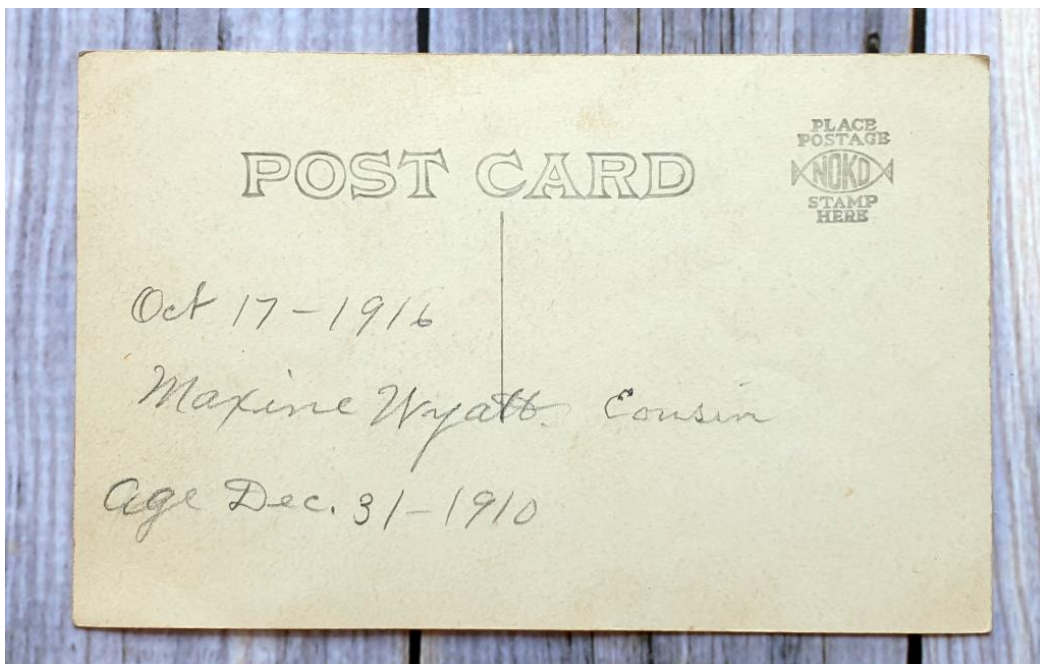 POST CARD
PLACE
POSTAGE
NOKO
STAMP
HERE
Oct 17-1916
Maxine Wyatt. Cousin
Age Dec. 31-1910